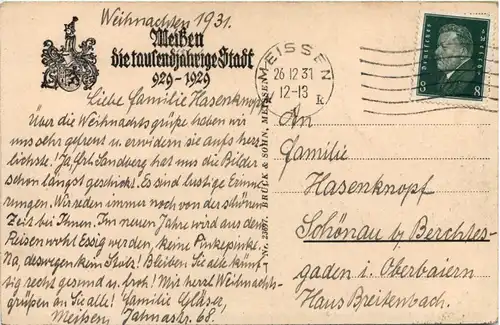 Weihnachten 1931.
Meißen
die tausendjährige Stadt
929-1929
Liebe Familie Hasenknopf!
Über die Weihnachtsgrüße haben wir
uns sehr gefreut u. erwidern sie aufs herz-
lichste! Ja, Frl. Sandberg hat uns die Bilder
schon längst geschickt! Es sind lustige Erinne-
rungen. Wir reden immer noch von der schönen
Zeit bei Ihnen. Im neuen Jahre wird aus dem
Reisen wohl Essig werden, keine Pinkepinke.
Na, deswegen kein Stolz! Bleiben Sie alle künf-
tig recht gesund u. froh! Mit herzl. Weihnachts-
grüßen an Sie alle! Familie Gläser,
Meißen, Jahnastr. 68.
Nr. 2397. BRÜCK & SOHN, MEISSEN
MEISSEN
26.12.31
12-13
k
Deutsches Reich
8 8
An
Familie
Hasenknopf
Schönau b/ Berchtes-
gaden i. Oberbaiern
Haus Breitenbach.